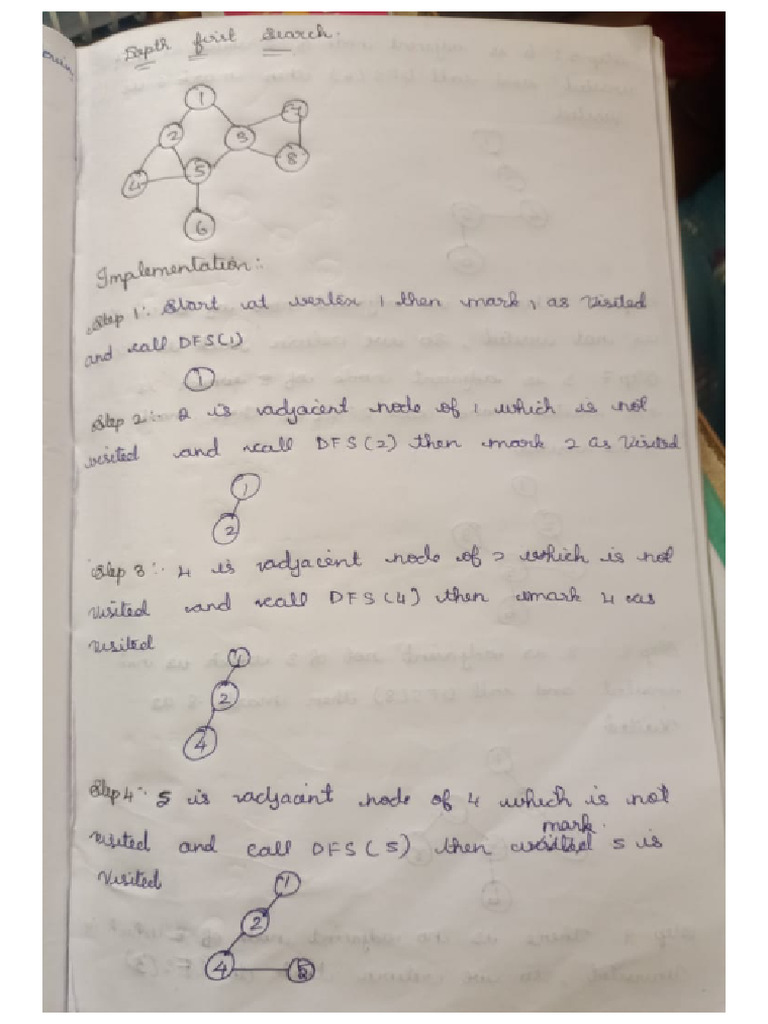 Depth first Search.
1
2
3
7
4
5
8
6
Implementation:
Step 1:- Start at vertex 1 then mark 1 as visited
and call DFS(1)
1
Step 2:- 2 is adjacent node of 1 which is not
visited and call DFS(2) then mark 2 as visited
1
2
Step 3:- 4 is adjacent node of 2 which is not
visited and call DFS(4) then mark 4 as
visited
1
2
4
Step 4:- 5 is adjacent node of 4 which is not
mark
visited and call DFS(5) then 5 is
visited
1
2
4
5